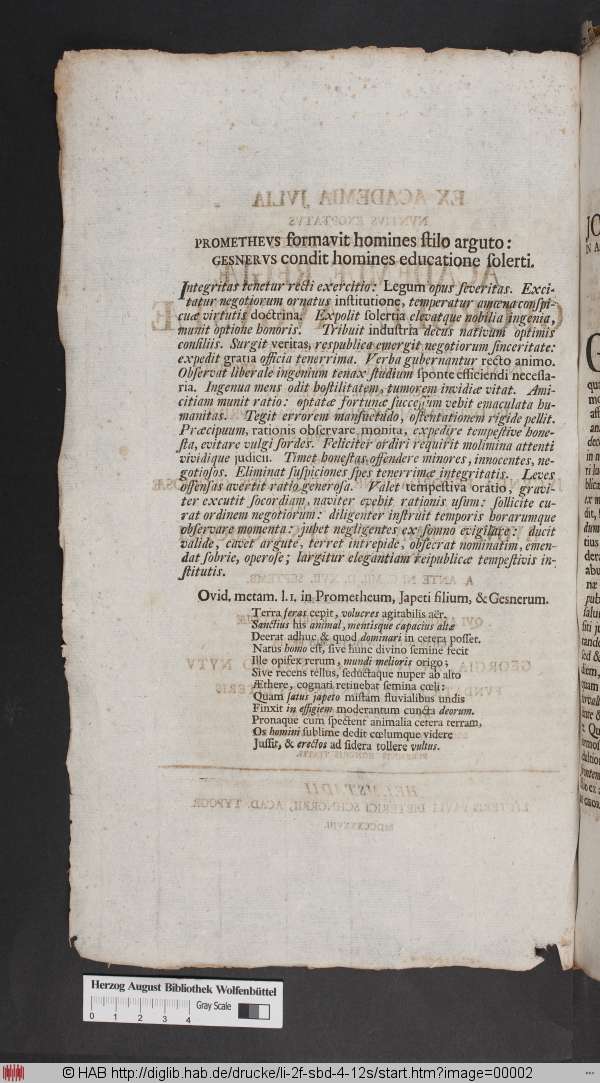 PROMETHEVS formavit homines ſtilo arguto:
GESNERVS condit homines educatione ſolerti.
Integritas tenetur recti exercitio: Legum opus ſeveritas. Exci-
tatur negotiorum ornatus inſtitutione, temperatur amœna conſpi-
cuæ virtutis doctrina. Expolit ſolertia elevatque nobilia ingenia,
munit optione honoris. Tribuit induſtria decus nativum optimis
conſiliis. Surgit veritas, respublica emergit negotiorum ſinceritate:
expedit gratia officia tenerrima. Verba gubernantur recto animo.
Obſervat liberale ingenium tenax ſtudium ſponte efficiendi neceſſa-
ria. Ingenua mens odit hoſtilitatem, tumorem invidiæ vitat. Ami-
citiam munit ratio: optatæ fortunæ ſucceſſum vehit emaculata hu-
manitas. Tegit errorem manſuetudo, oſtentationem rigide pellit.
Præcipuum, rationis obſervare monita, expedire tempeſtive hone-
ſta, evitare vulgi ſordes. Feliciter ordiri requirit molimina attenti
vividique judicii. Timet honeſtas offendere minores, innocentes, ne-
gotioſos. Eliminat ſuſpiciones ſpes tenerrimæ integritatis. Leves
offenſas avertit ratio generoſa. Valet tempeſtiva oratio, gravi-
ter excutit ſocordiam, naviter evehit rationis uſum: ſollicite cu-
rat ordinem negotiorum: diligenter inſtruit temporis horarumque
obſervare momenta: jubet negligentes ex ſomno evigilare: ducit
valide, cavet argute, terret intrepide, obſecrat nominatim, emen-
dat ſobrie, operoſe; largitur elegantiam reipublicæ tempeſtivis in-
ſtitutis.
Ovid. metam. l. 1. in Prometheum, Japeti filium, & Gesnerum.
Terra feras cepit, volucres agitabilis aër.
Sanctius his animal, mentisque capacius altæ
Deerat adhuc & quod dominari in cetera poſſet.
Natus homo eſt, ſive hunc divino ſemine fecit
Ille opifex rerum, mundi melioris origo;
Sive recens tellus, ſeductaque nuper ab alto
Æthere, cognati retinebat ſemina cœli:
Quam ſatus japeto miſtam fluvialibus undis
Finxit in effigiem moderantum cuncta deorum.
Pronaque cum ſpectent animalia cetera terram,
Os homini ſublime dedit cœlumque videre
Juſſit, & erectos ad ſidera tollere vultus.
Herzog August Bibliothek Wolfenbüttel
Gray Scale
0 1 2 3 4
© HAB http://diglib.hab.de/drucke/li-2f-sbd-4-12s/start.htm?image=00002